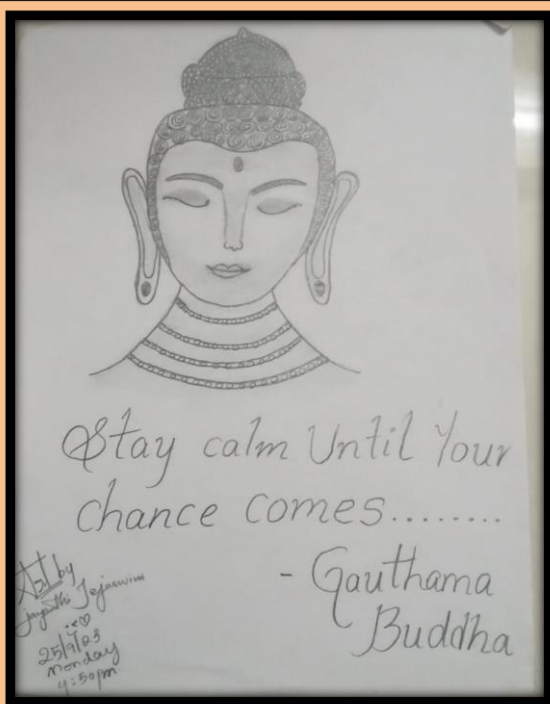 Stay calm Until Your
chance comes........
- Gauthama
Buddha
Art by
Tejaswini
25/9/23
Monday
4:50pm